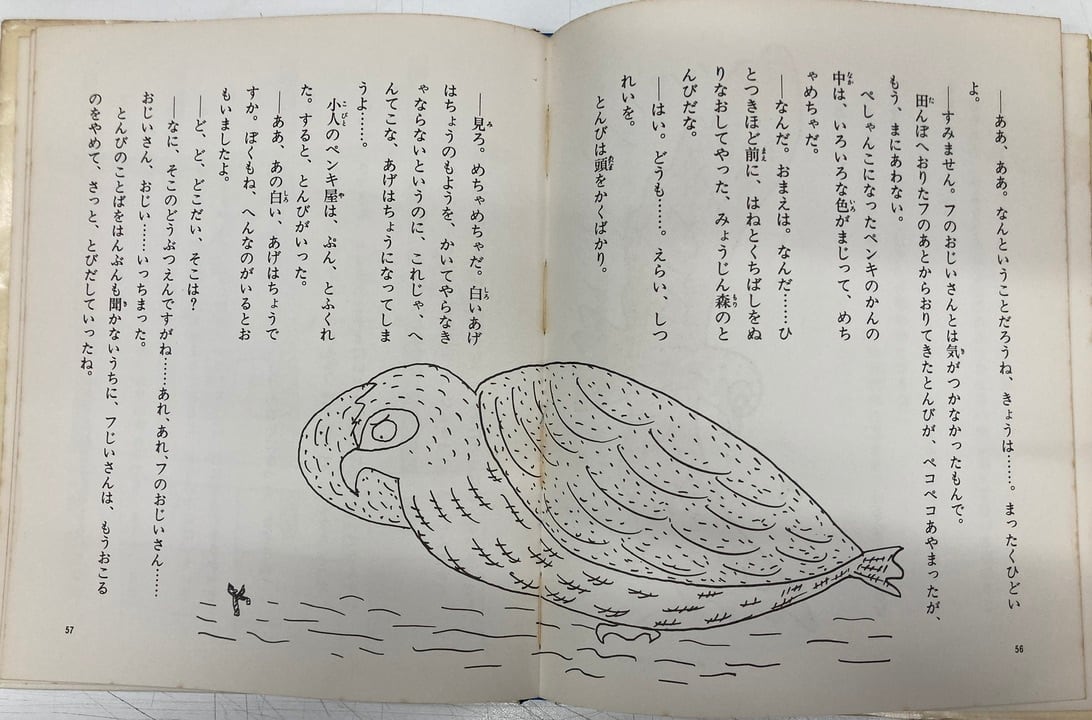 ――ああ、ああ。なんということだろうね、きょうは……。まったくひどい
よ。
――すみません。フのおじいさんとは気がつかなかったもんで。
田んぼへおりたフのあとからおりてきたとんびが、ペコペコあやまったが、
もう、まにあわない。
ぺしゃんこになったペンキのかんの
中は、いろいろな色がまじって、めち
ゃめちゃだ。
――なんだ。おまえは。なんだ……ひ
とつきほど前に、はねとくちばしをぬ
りなおしてやった、みょうじん森のと
んびだな。
――はい。どうも……。えらい、しつ
れいを。
とんびは頭をかくばかり。
56
――見ろ。めちゃめちゃだ。白いあげ
はちょうのもようを、かいてやらなき
ゃならないというのに、これじゃ、へ
んてこな、あげはちょうになってしま
うよ……。
小人のペンキ屋は、ぷん、とふくれ
た。すると、とんびがいった。
――ああ、あの白い、あげはちょうで
すか。ぼくもね、へんなのがいるとお
もいましたよ。
――ど、ど、どこだい、そこは？
――なに、そこのどうぶつえんですがね……あれ、あれ、フのおじいさん……
おじいさん、おじい……いっちまった。
とんびのことばをはんぶんも聞かないうちに、フじいさんは、もうおこる
のをやめて、さっと、とびだしていったね。
57